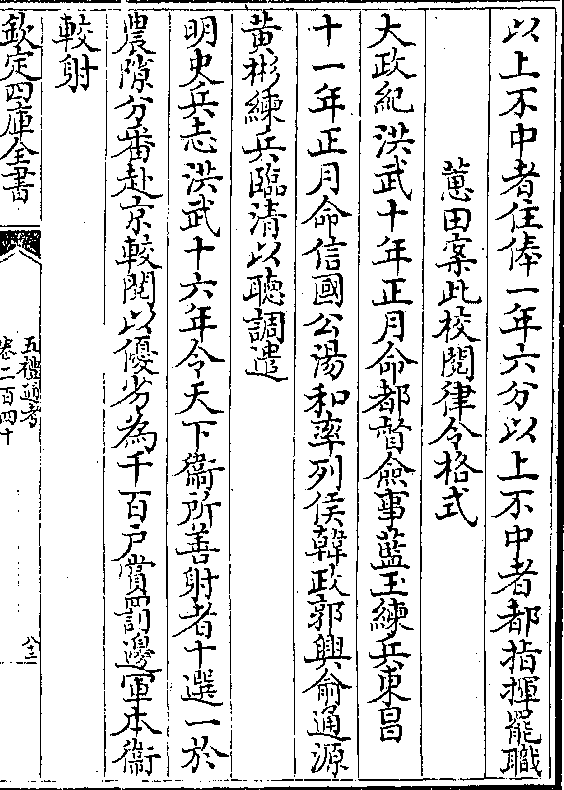 以上不中者住俸一年六分以上不中者都指揮罷職
蕙田案此校閱律令格式
大政紀洪武十年正月命都督僉事藍玉練兵東昌
十一年正月命信國公湯和率列侯韓政郭興俞通源
黄彬練兵臨清以聽調遣
明史兵志洪武十六年令天下衞所善射者十選一於
農隙分番赴京較閱以優劣為千百户賞罰邊軍本衞
較射
欽定四庫全書
五禮通考
卷二百四十
八三